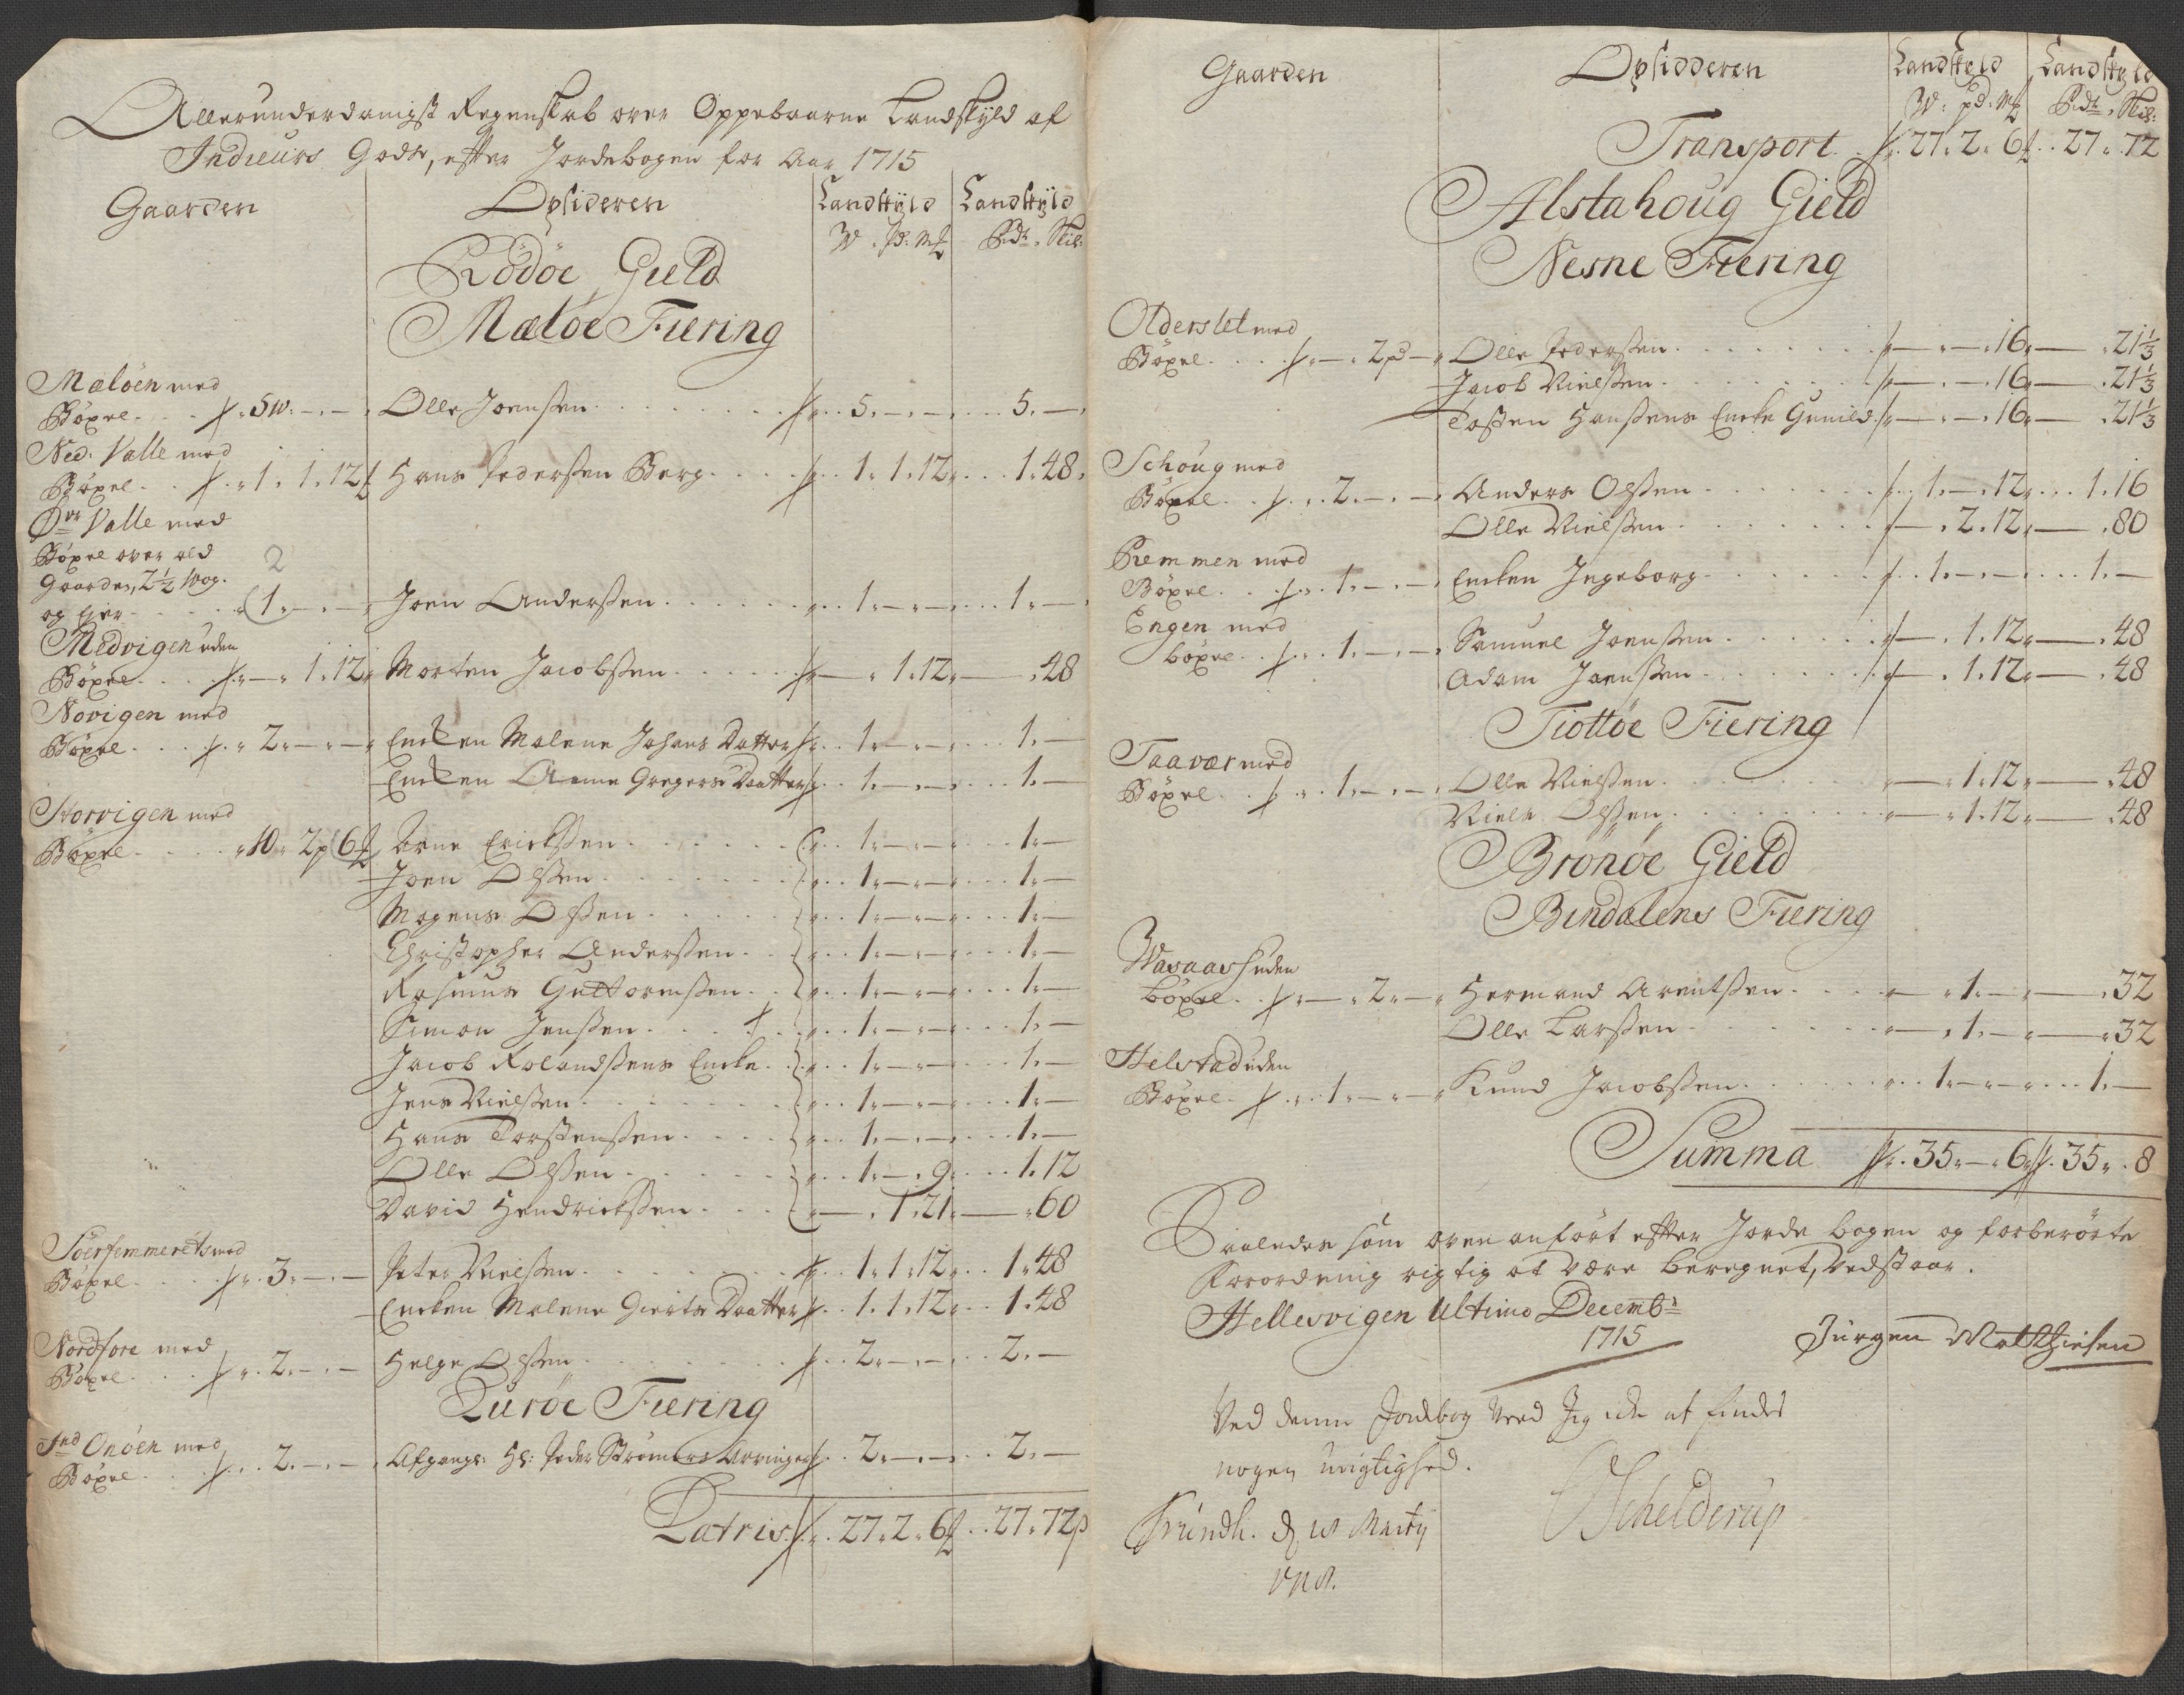 Allerunderdanigst Regenskab over Oppebaarne Landskyld af
Indieurs Gods, efter Jordebogen for Aar 1715
Gaarden Opsideren Landskÿld Landskÿld
W. pd: mk Rdr. Skil:
Rödöe Gield
Mæløe Fiering
Mæløen med
Böxel 5w. - . - Olle Joensen 5. - . - 5. -
Ned: Valle med
Böxel 1. 1. 12 Hans Pedersen Berg 1. 1. 12 1. 48
Øvr Valle med
Böxel over ald 2
Gaarden, 2½ Wog.
og Ejer 1. - . - Joen Andersen 1. - . - 1. -
Medvigen uden
Böxel - . 1. 12 Morten Jacobsen - . 1. 12 - . 48
Novigen med
Böxel 2. - . - Encken Malene Johans Datter 1. - . - 1. -
Encken Anne Gregers Daatter 1. - . - 1. -
Storvigen med
Böxel 10. 2 p 6 Arne Ericksen 1. - . - 1. -
Joen Olsen 1. - . - 1. -
Mogens Olsen 1. - . - 1. -
Christopher Andersen 1. - . - 1. -
Rasmus Guttormsen 1. - . - 1. -
Simon Jensen 1. - . - 1. -
Jacob Rolandsens Encke 1. - . - 1. -
Jens Nielsen 1. - . - 1. -
Hans Torstensen 1. - . - 1. -
Olle Olsen 1. - . 9 1. 12
David Hendricksen - . 1. 21 - . 60
Soerfemmerets med
Böxel 3. - . - Peter Nielsen 1. 1. 12 1. 48
Encken Malene Gierts Daatter 1. 1. 12 1. 48
Nordfore med
Böxel 2. - . - Helge Olsen 2. - . - 2. -
Luröe Fiering
Ind Onöen med
Böxel 2. - . - Afgangs: Hr: Peder Strömers Arvinger 2. - . - 2. -
Latris 27. 2. 6 27. 72
Gaarden Opsidderen Landskyld Landskyld
W. pd. mk Rdr. Skil:
Transport 27. 2. 6 27. 72
Alstahoug Gield
Nesne Fiering
Olderslet med
Böxel - . 2pd - Olle Pedersen - . - . 16 - . 21⅓
Jacob Nielsen - . - . 16 - . 21⅓
Tosten Hansens Encke Gunild - . - . 16 - . 21⅓
Schoug med
Böxel 2. - . - Anders Olsen 1. - . 12 1. 16
Olle Nielsen - . 2. 12 - . 80
Remmen med
Böxel 1. - . - Encken Ingeborg 1. - . - 1. -
Engen med
böxel 1. - . - Samuel Joensen - . 1. 12 - . 48
Adam Joensen - . 1. 12 - . 48
Tiottöe Fiering
Taavær med
Böxel 1. - . - Olle Nielsen - . 1. 12 - . 48
Niels Olsen - . 1. 12 - . 48
Brönöe Gield
Bindalens Fiering
Wasaas uden
böxel - . 2. - Hermand Arentsen - . 1. - - . 32
Olle Larsen - . 1. - - . 32
Helstad uden
Böxel 1. - . - Knud Jacobsen 1. - . - 1. -
Summa 35. - . 6 35. 8
Saaledes som oven anfört efter Jordebogen og forberörte
Forordning rigtig at være beregnet, vedstaar.
Hellesvigen Ultimo Decembr
1715 Jürgen Matthiesen
Ved denne Jordebog Veed Jeg icke at findes
nogen urigtighed.
Trundh. d 18 Marty
Schelderup